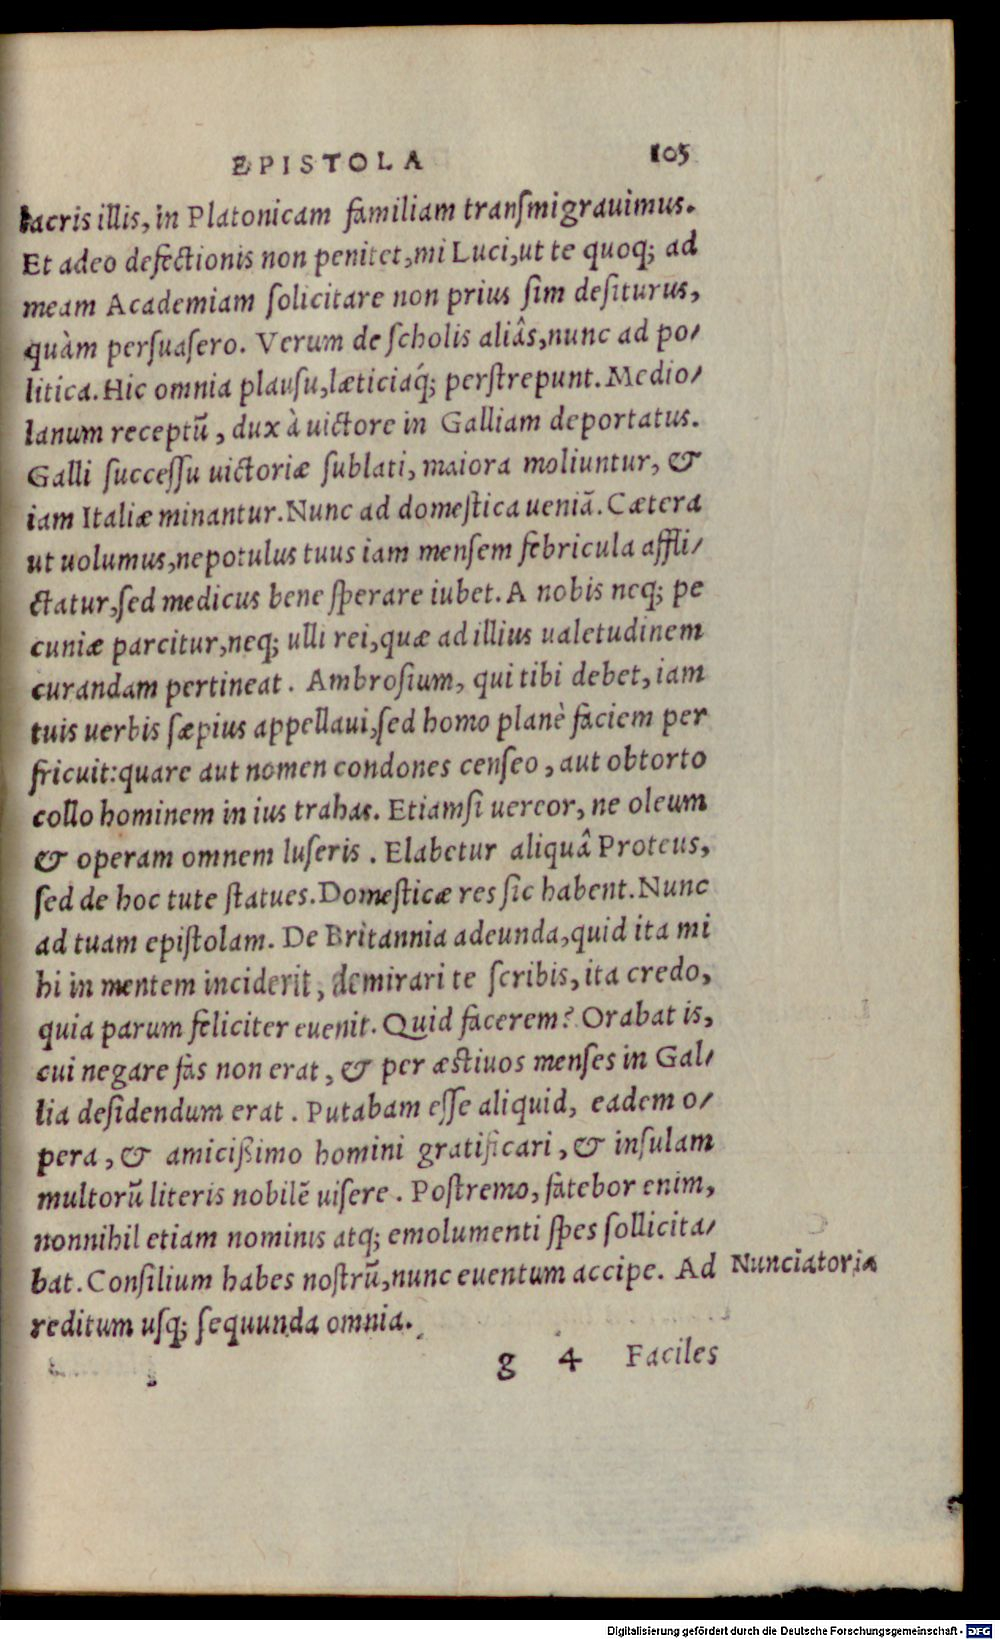 EPISTOLA 105
lacris illis, in Platonicam familiam tranſmigrauimus.
Et adeo defectionis non penitet, mi Luci, ut te quoq; ad
meam Academiam ſolicitare non prius ſim deſiturus,
quàm perſuaſero. Verum de ſcholis aliâs, nunc ad po/
litica. Hic omnia plauſu, læticiaq́; perſtrepunt. Medio/
lanum receptū, dux à uictore in Galliam deportatus.
Galli ſucceſſu uictoriæ ſublati, maiora moliuntur, &
iam Italiæ minantur. Nunc ad domeſtica ueniā. Cætera
ut uolumus, nepotulus tuus iam menſem febricula affli/
ctatur, ſed medicus bene ſperare iubet. A nobis neq; pe
cuniæ parcitur, neq; ulli rei, quæ ad illius ualetudinem
curandam pertineat. Ambroſium, qui tibi debet, iam
tuis uerbis ſæpius appellaui, ſed homo planè faciem per
fricuit: quare aut nomen condones cenſeo, aut obtorto
collo hominem in ius trahas. Etiamſi uereor, ne oleum
& operam omnem luſeris. Elabetur aliquâ Proteus,
ſed de hoc tute ſtatues. Domeſticæ res ſic habent. Nunc
ad tuam epiſtolam. De Britannia adeunda, quid ita mi
hi in mentem inciderit, demirari te ſcribis, ita credo,
quia parum feliciter euenit. Quid facerem? Orabat is,
cui negare fas non erat, & per æstiuos menſes in Gal/
lia deſidendum erat. Putabam eſſe aliquid, eadem o/
pera, & amicißimo homini gratificari, & inſulam
multorū literis nobilē uiſere. Poſtremo, fatebor enim,
nonnihil etiam nominis atq; emolumenti ſpes ſollicita/
bat. Conſilium habes noſtrū, nunc euentum accipe. Ad
Nunciatoria
reditum uſq; ſequunda omnia.
g 4 Faciles
Digitalisierung gefördert durch die Deutsche Forschungsgemeinschaft - DFG